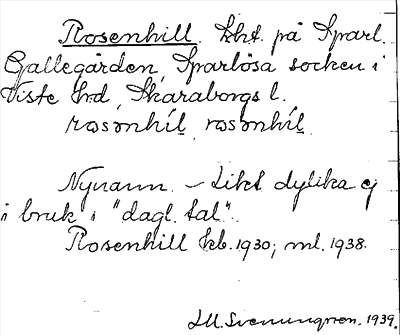 Rosenhill. lht. på Sparl.
Gallegården, Sparlösa socken i
Viste hrd, Skaraborgs l.
rosənhíl, rosənhíl,
Nynamn. – Likt dylika ej
i bruk i "dagl. tal".
Rosenhill kb. 1930; ml. 1938.
J.M. Svenungson. 1939.